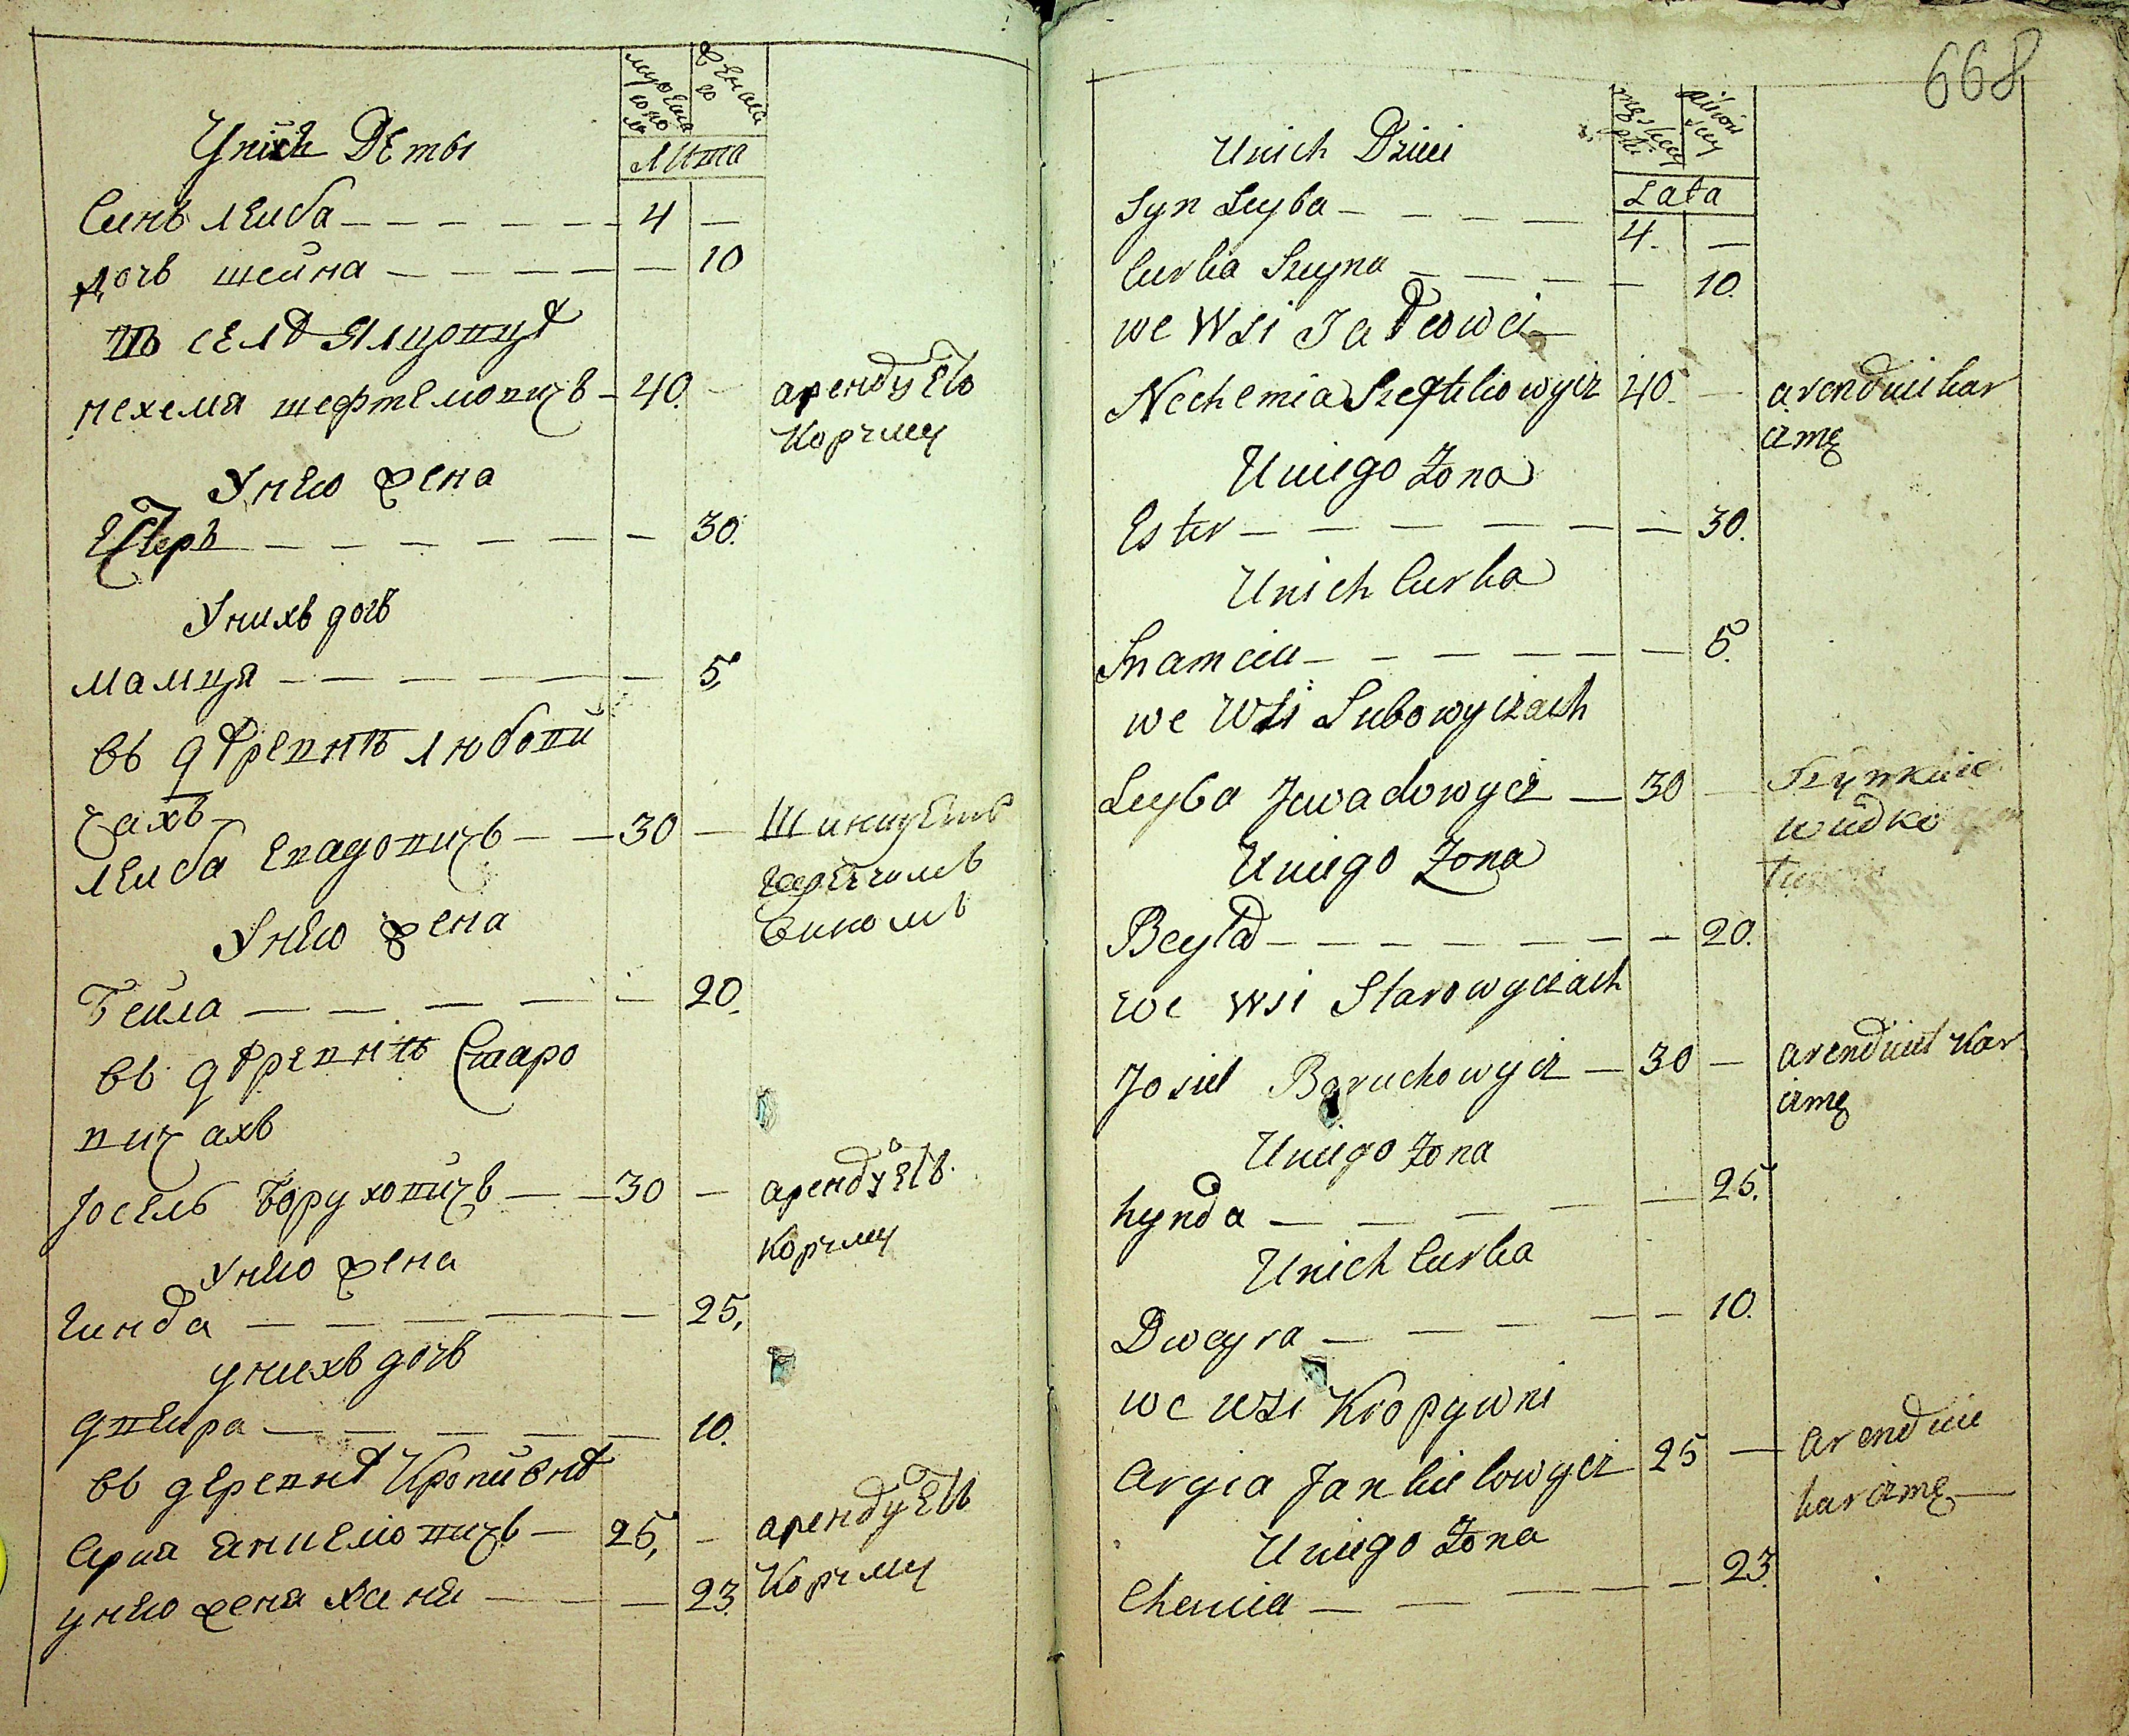 мужеска полу
женска го
Лита
Унихъ Дѣты
Синъ Леиба — 4 —
дочъ шейна — 10
въ селѣ Ялцовцѣ
нехемя шефтелювичъ — 40. — арендуетъ
Корчму
Унего жена
Естеръ — 30.
Унихъ дочъ
мамця — 5,
въ деревнѣ Любови
чахъ
леиба Евадовичъ — 30 — Шинкуетъ
Унего жена
виномъ
Бейла — 20.
въ деревнѣ Старо
вичахъ
Іосель Боруховичъ — 30 — арендуетъ
корчму
Унего жена
Гинда — 25,
унихъ дочъ
двеира — 10.
въ деревнѣ Кропивнѣ
Ария Янкелювичъ — 25, — арендуетъ
Корчму
унего жена хаия — 23.
668
Lata
Unich Dzieci
Syn Leyba — 4. —
Curka Szeyna — 10.
we Wsi
Nechemia Szeftelowycz 40. — arenduie kar
czmę
Uniego Żona
Ester — 30.
Unich Curka
— 5.
we Wsi Lubowyczach
Leyba Jewadowycz — 30 — Szynkuie
wudko
Uniego Żona
Beyla — 20.
we Wsi Starowyczach
Josiel Boruchowycz — 30 — arenduiet kar
czmę
Uniego Żona
hynda — 25.
Unich Curka
Dweyra — 10.
we Wsi Kropywni
Aryia Jankielowycz 25 — arenduie
karczmę
Uniego Żona
— 23.